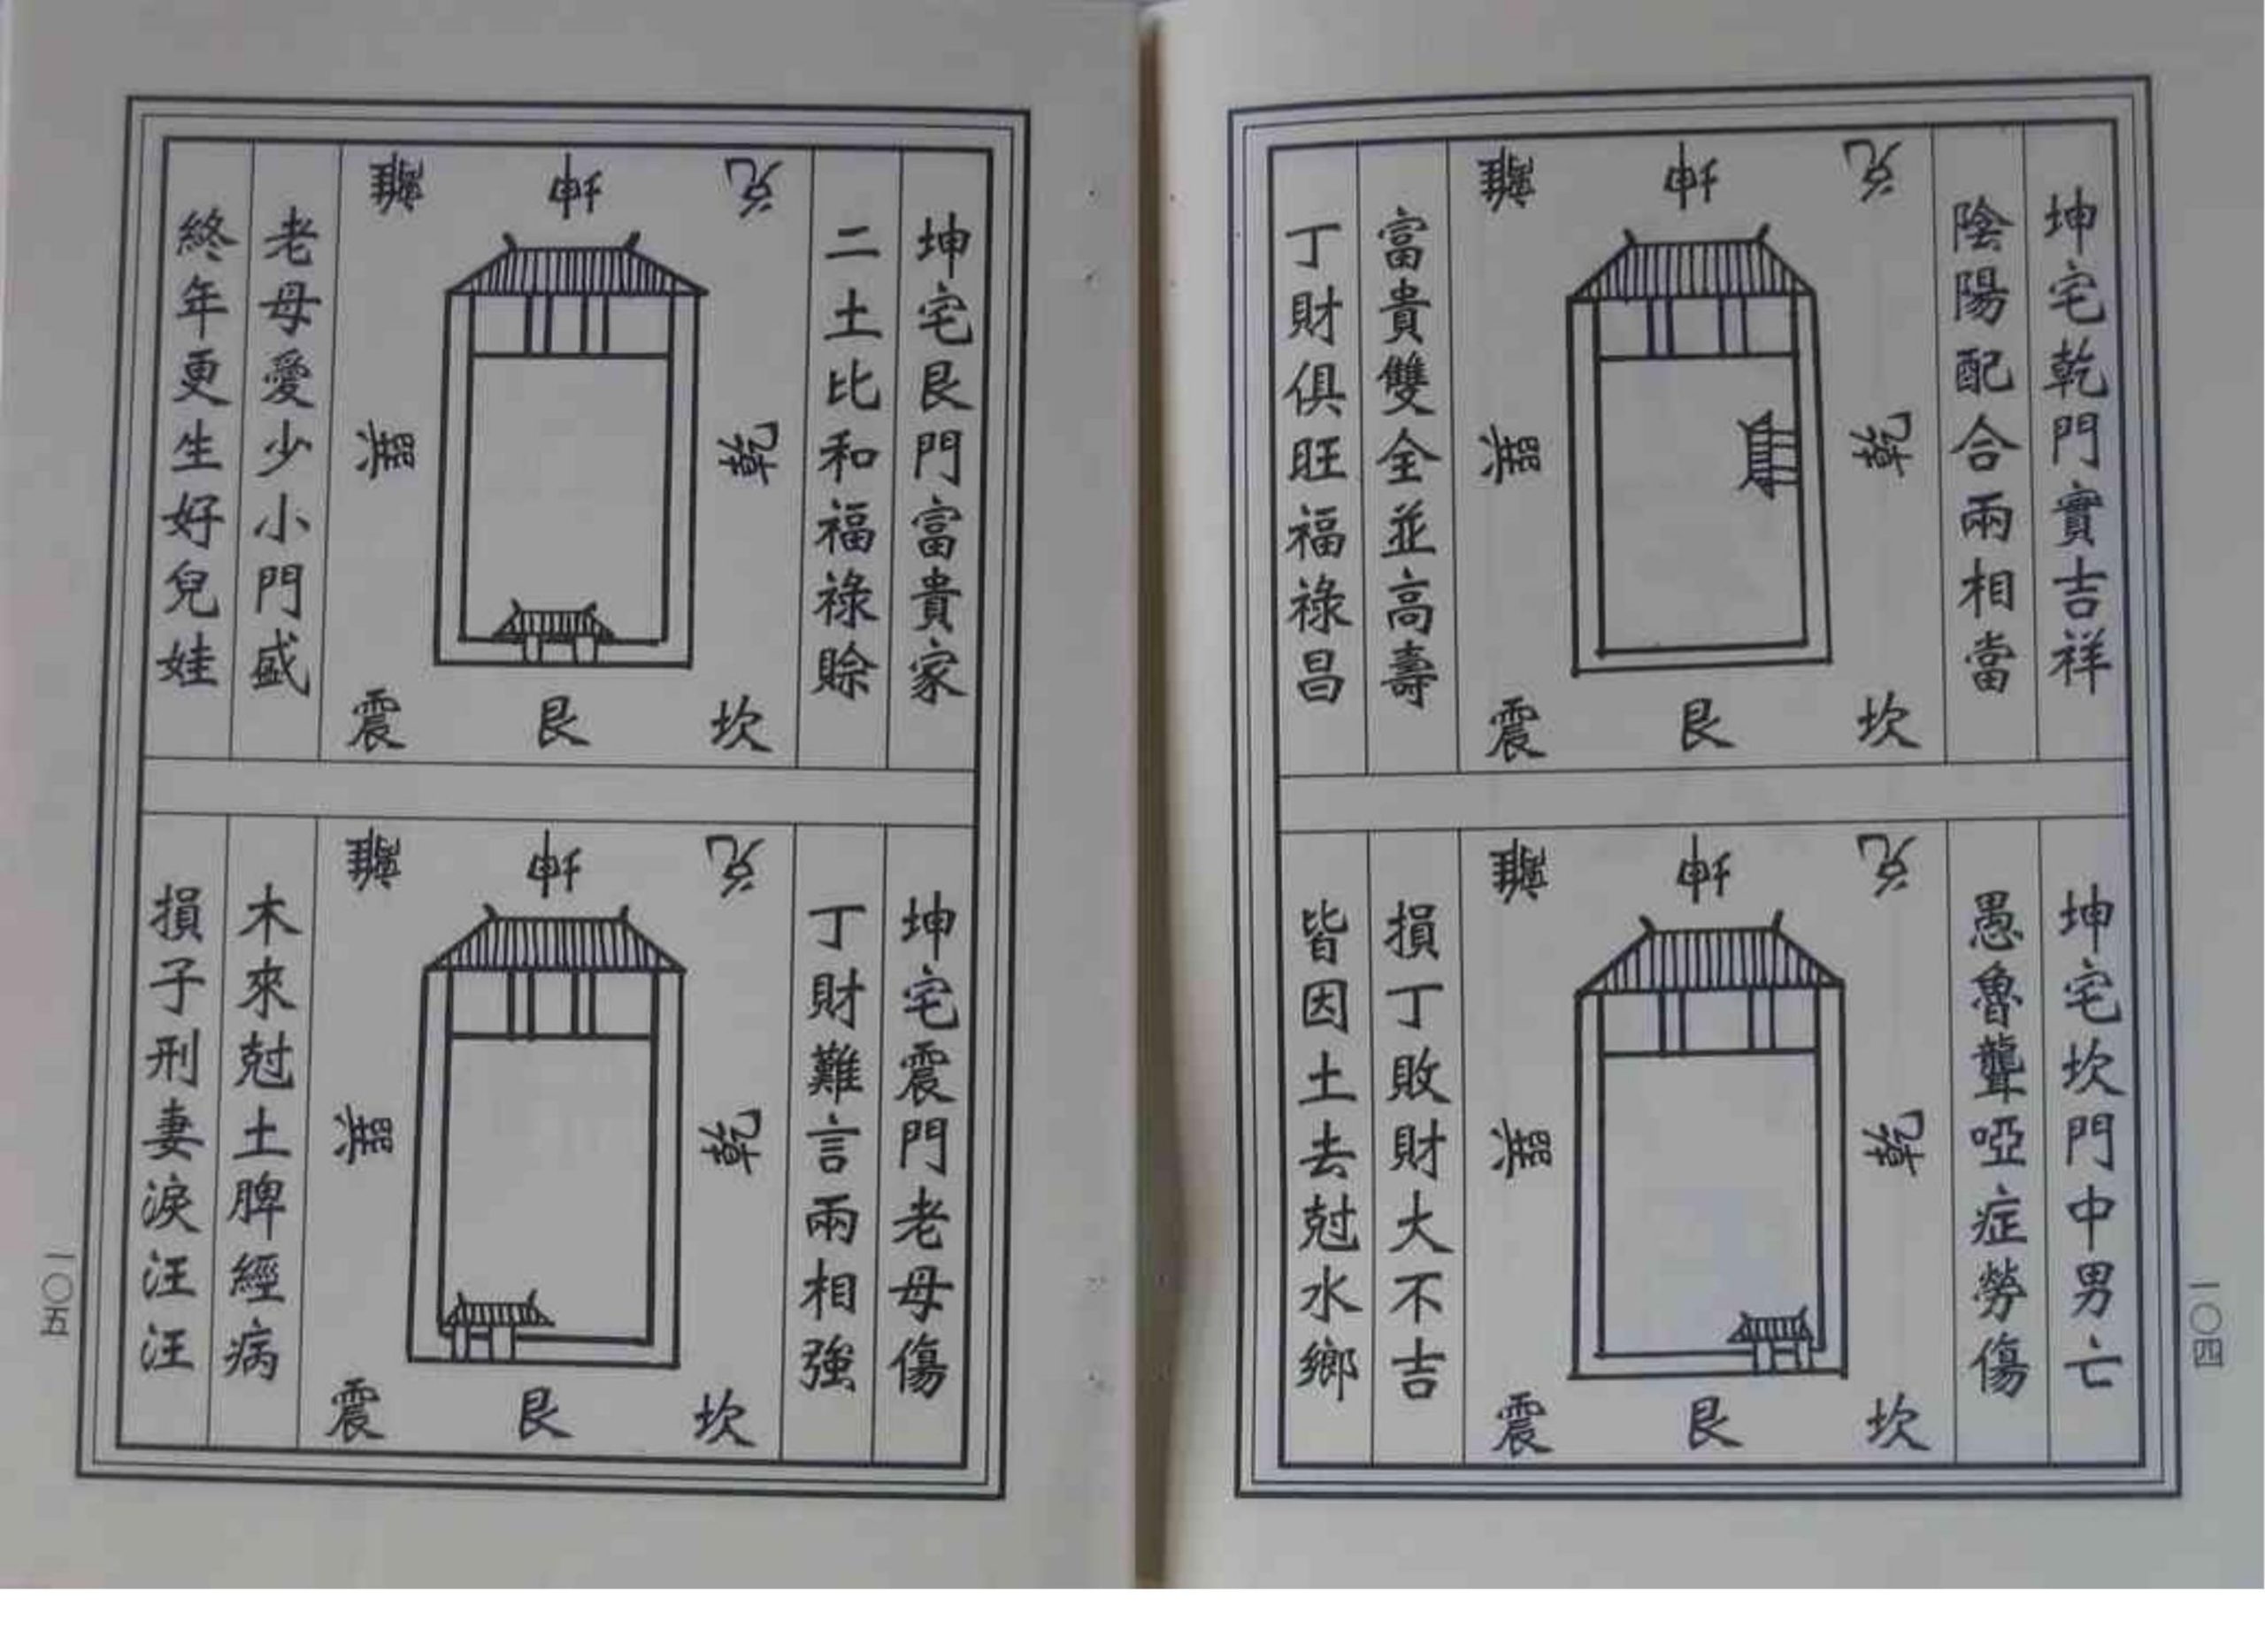 坤宅乾門實吉祥
陰陽配合兩相當
兌
坤
離
乾
巽
坎
艮
震
富貴雙全並高壽
丁財俱旺福祿昌
坤宅坎門中男亡
愚魯聾啞症勞傷
兌
坤
離
乾
巽
坎
艮
震
損丁敗財大不吉
皆因土去尅水鄉
一〇四
坤宅艮門富貴家
二土比和福祿賒
兌
坤
離
乾
巽
坎
艮
震
老母愛少小門盛
終年更生好兒娃
坤宅震門老母傷
丁財難言兩相強
兌
坤
離
乾
巽
坎
艮
震
木來尅土脾經病
損子刑妻淚汪汪
一〇五